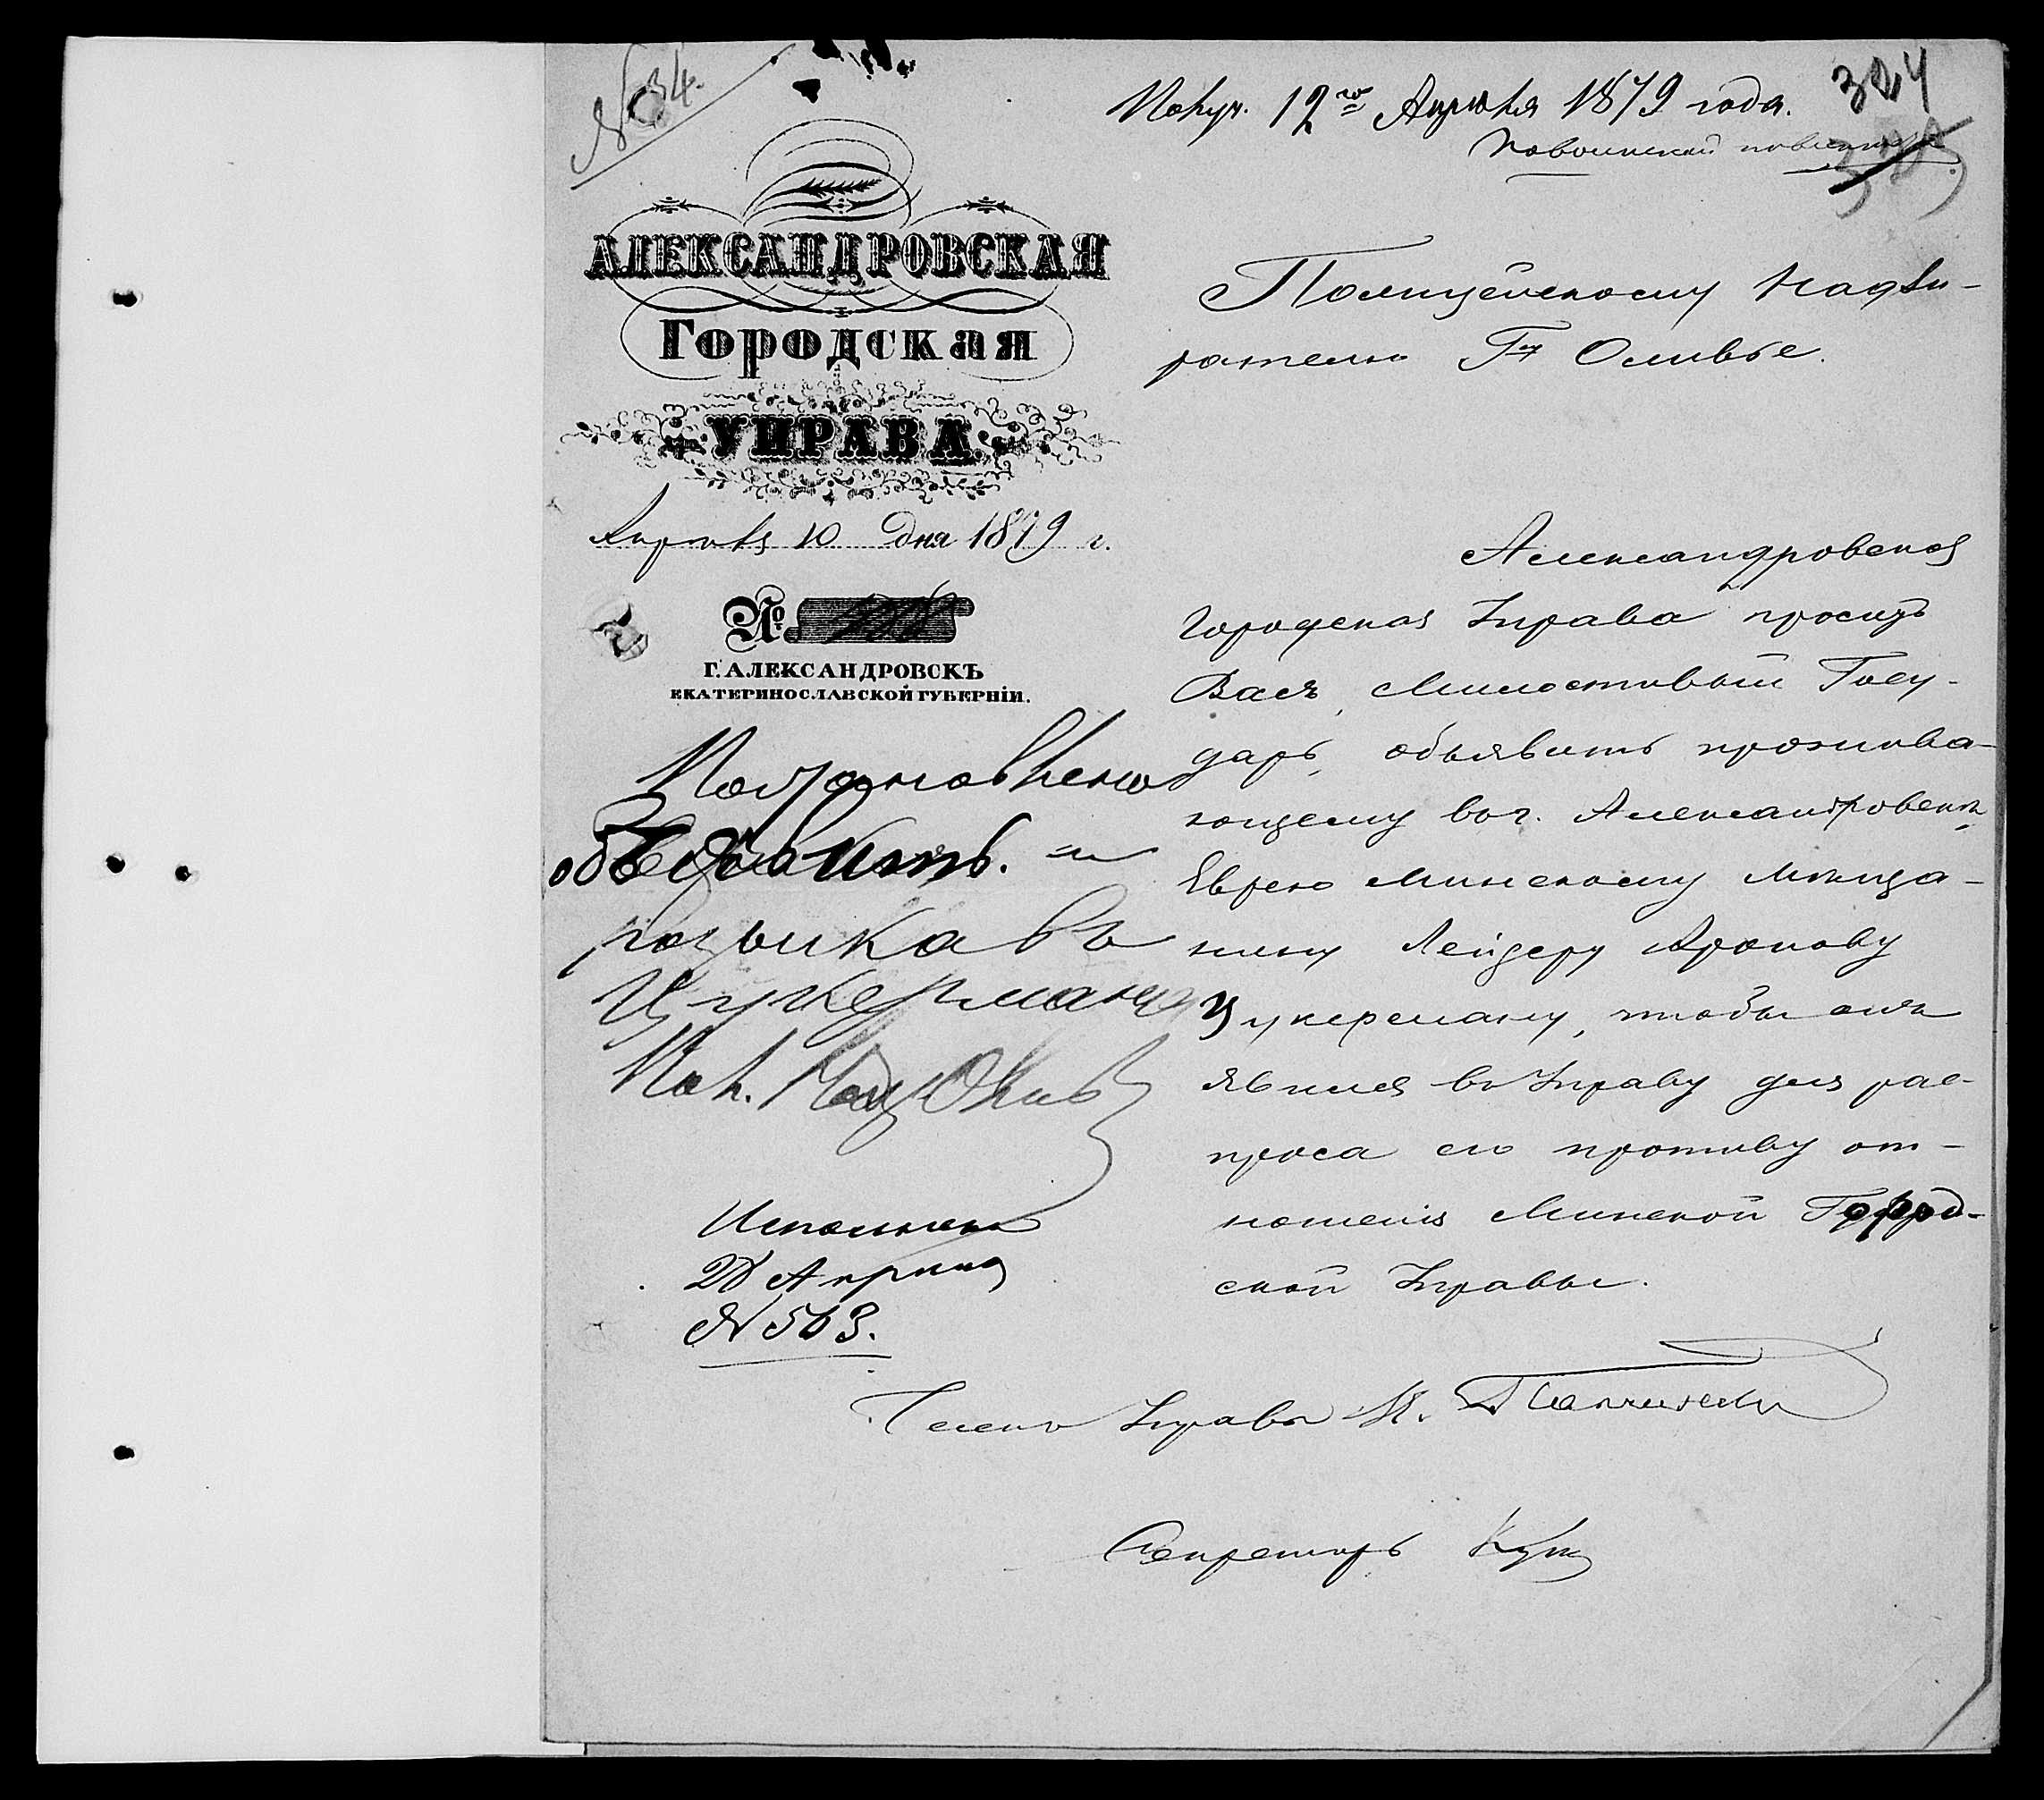 № 34.
Получ. 12го Апрѣля 1879 года.
324
АЛЕКСАНДРОВСКАЯ
Городская
УПРАВА.
Апрѣля 10 дня 1879 г.
№
Г. АЛЕКСАНДРОВСКЪ
ЕКАТЕРИНОСЛАВСКОЙ ГУБЕРНІИ.
Полицейскому Надзи-
рателю Гну Оливье.
Александровская
Городская Управа проситъ
Васъ, Милостивый Госу-
дарь, объявить прожива-
ющему въ г. Александровскѣ
Еврею Минскому мѣща-
нину Лейзеру Аронову
Цукерману, чтобы онъ
явился въ Управу для рас-
проса его противу от-
ношенія Минской Город-
ской Управы.
объявить. и
розыскавъ
Цукермана
Пол. Надз Оливье
Исполнено
20 Апрѣля
№ 503.
Членъ Управы М.
Секретарь